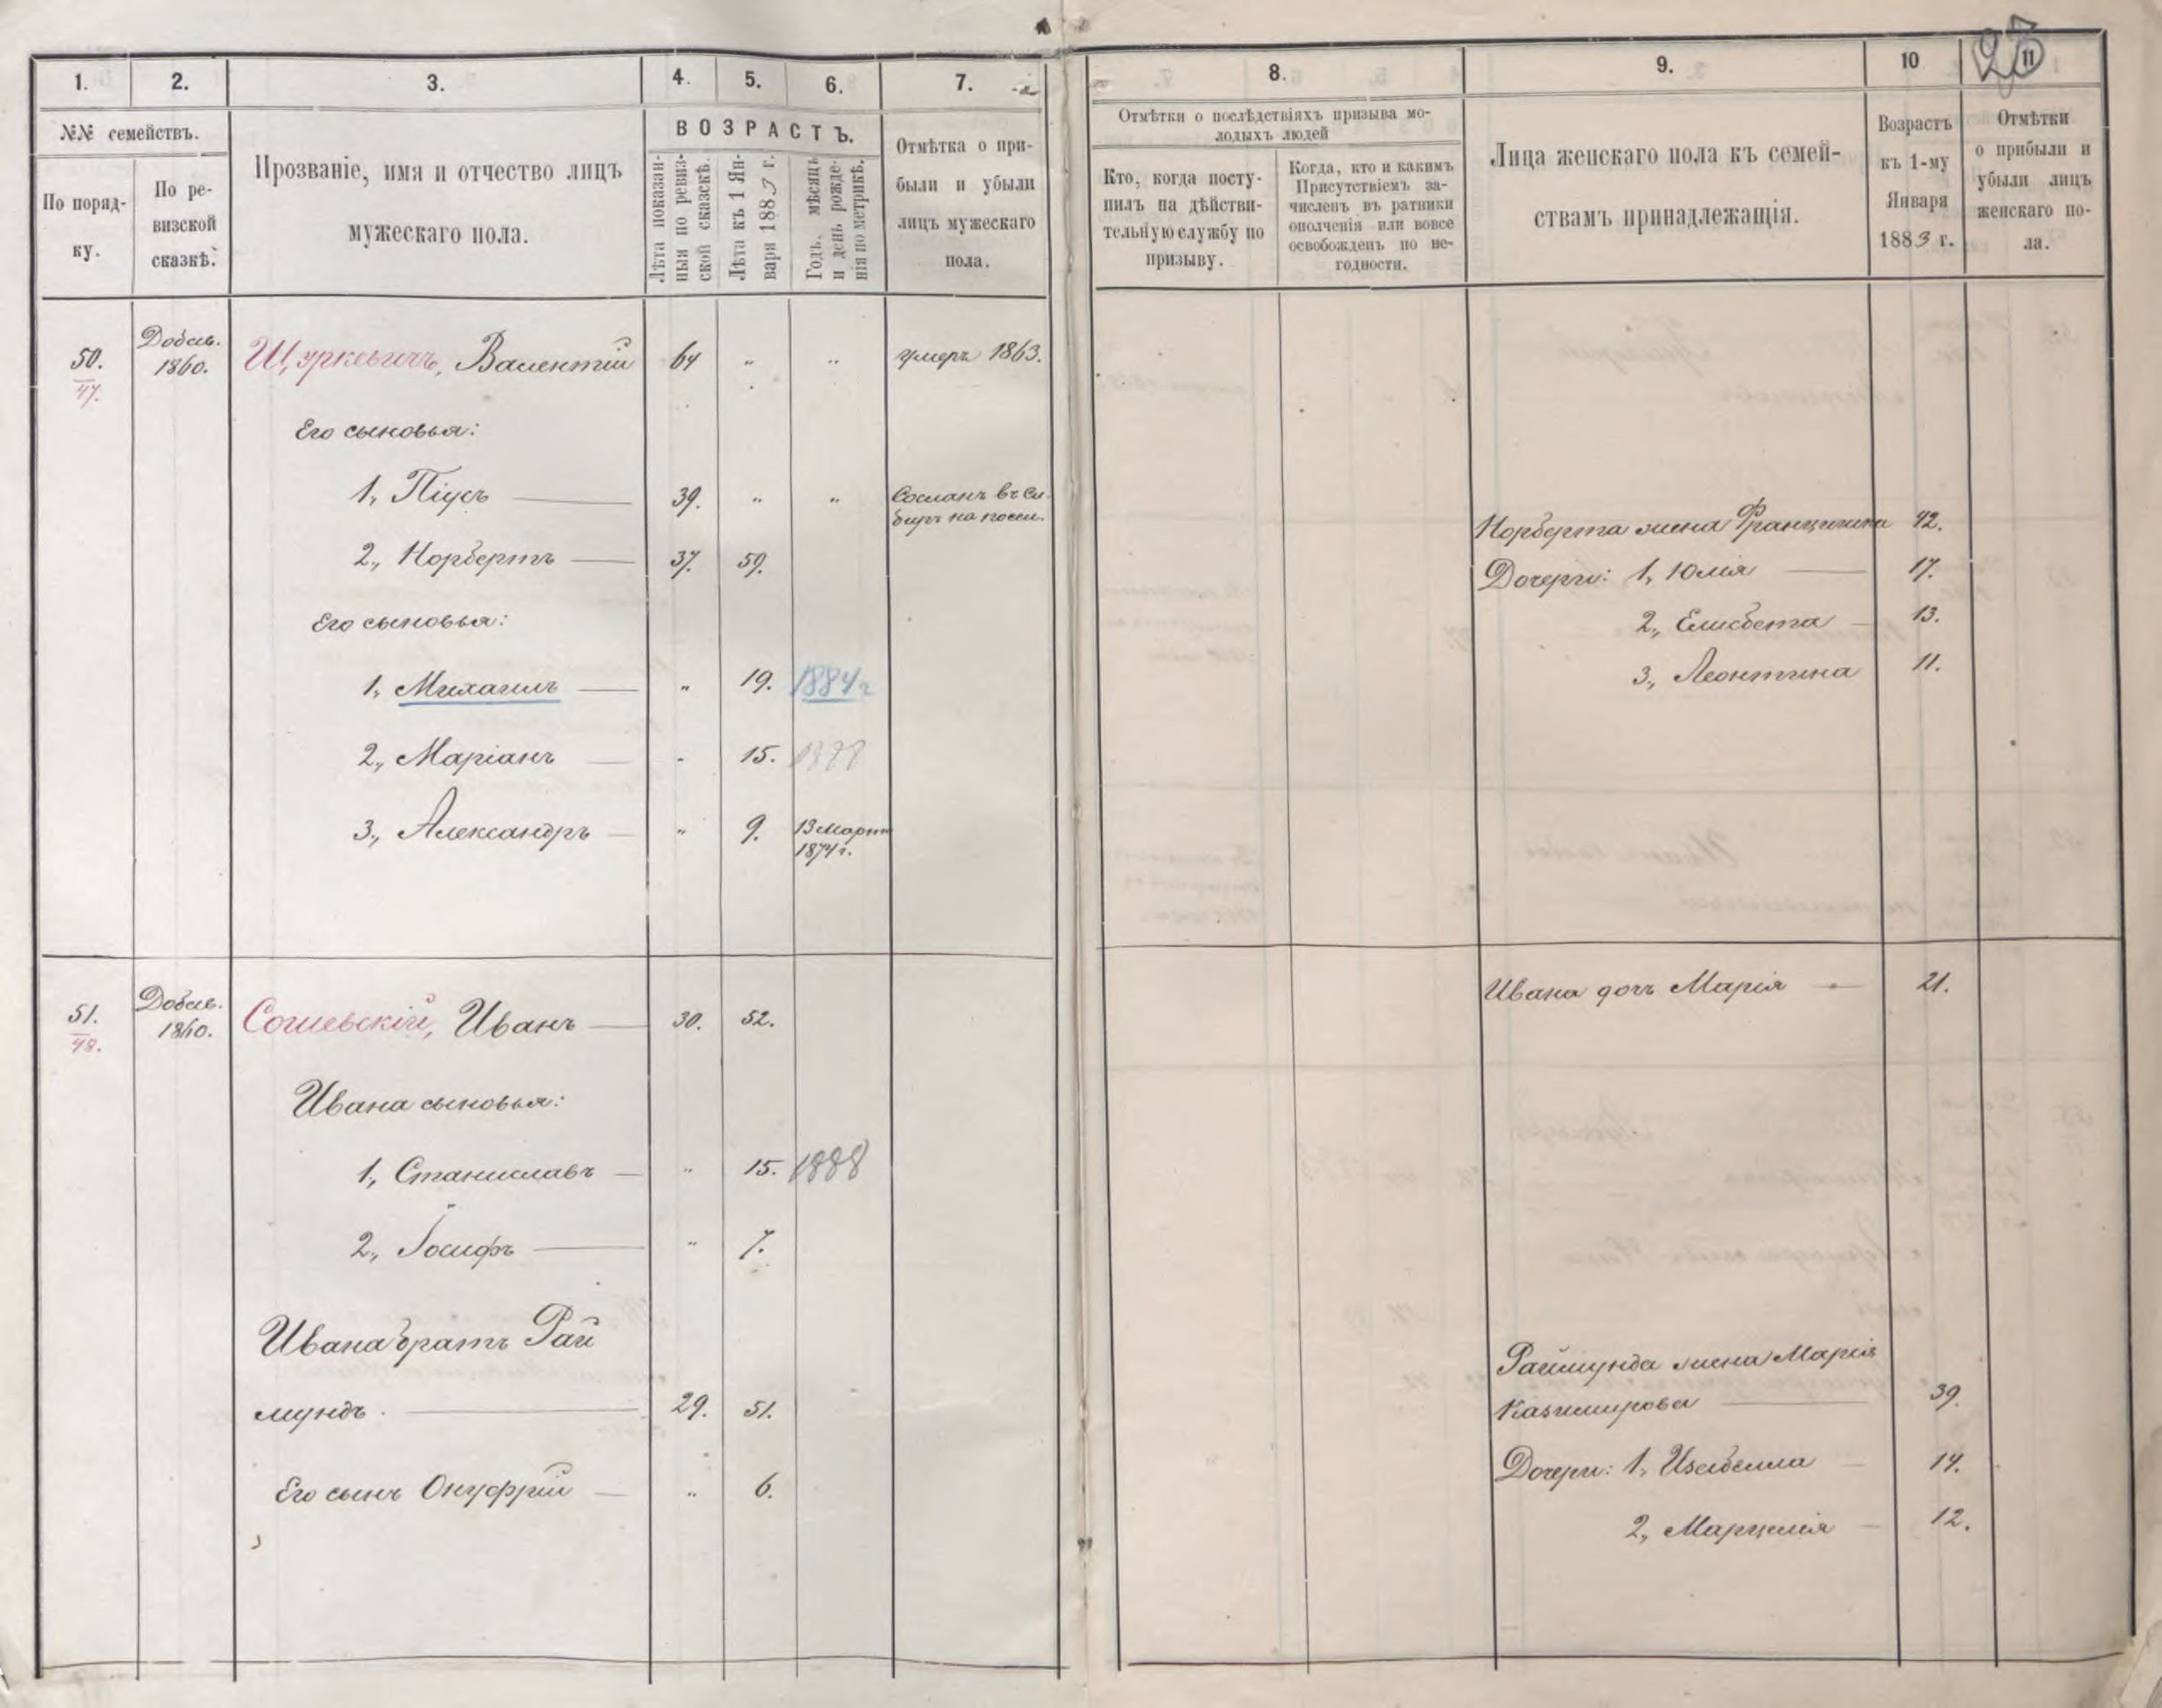 25
1.
2.
3.
4.
5.
6.
7.
8.
9.
10
11
№№ семействъ.
По поряд-
ку.
По ре-
визской
сказкѣ.
Прозваніе, имя и отчество лицъ
мужескаго пола.
ВОЗРАСТЪ.
Лѣта показан-
ныя по ревиз-
ской сказкѣ.
Лѣта къ 1 Ян-
варя 1883 г.
Годъ, мѣсяцъ
и день рожде-
нія по метрикѣ.
Отмѣтка о при-
были и убыли
лицъ мужескаго
пола.
Отмѣтки о послѣдствіяхъ призыва мо-
лодыхъ людей
Кто, когда посту-
пилъ на дѣйстви-
тельную службу по
призыву.
Когда, кто и какимъ
Присутствіемъ за-
численъ въ ратники
ополченія или вовсе
освобожденъ по не-
годности.
Лица женскаго пола къ семей-
ствамъ принадлежащія.
Возрастъ
къ 1-му
Января
1883 г.
Отмѣтки
о прибыли и
убыли лицъ
женскаго по-
ла.
50.
47.
Добав.
1860.
Щуркевичъ, Валентій 64 " " умеръ 1863.
Его сыновья:
1, Піусъ 39. " " Сосланъ въ Си-
бирь на посел.
2, Норбертъ 37. 59.
Его сыновья:
1, Михаилъ " 19. 1884 г
2, Маріанъ " 15. 1888
3, Александръ " 9. 13 Март
1874 г.
Норберта жена Францишка 42.
Дочери: 1, Юлія 17.
2, Елисбета 13.
3, Леонтина 11.
51.
48.
Добав.
1860.
Сошевскій, Иванъ 30. 52.
Ивана сыновья:
1, Станиславъ " 15. 1888
2, Іосифъ " 7.
Ивана братъ Рай
мундъ 29. 51.
Его сынъ Онуфрій " 6.
Ивана дочь Марія 21.
Раймунда жена Марія
Казимирова 39.
Дочери: 1, Изабелла 14.
2, Марцелія 12.